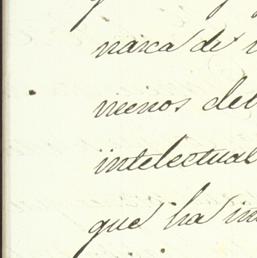 narca de
menos de
intelectual
que ha in